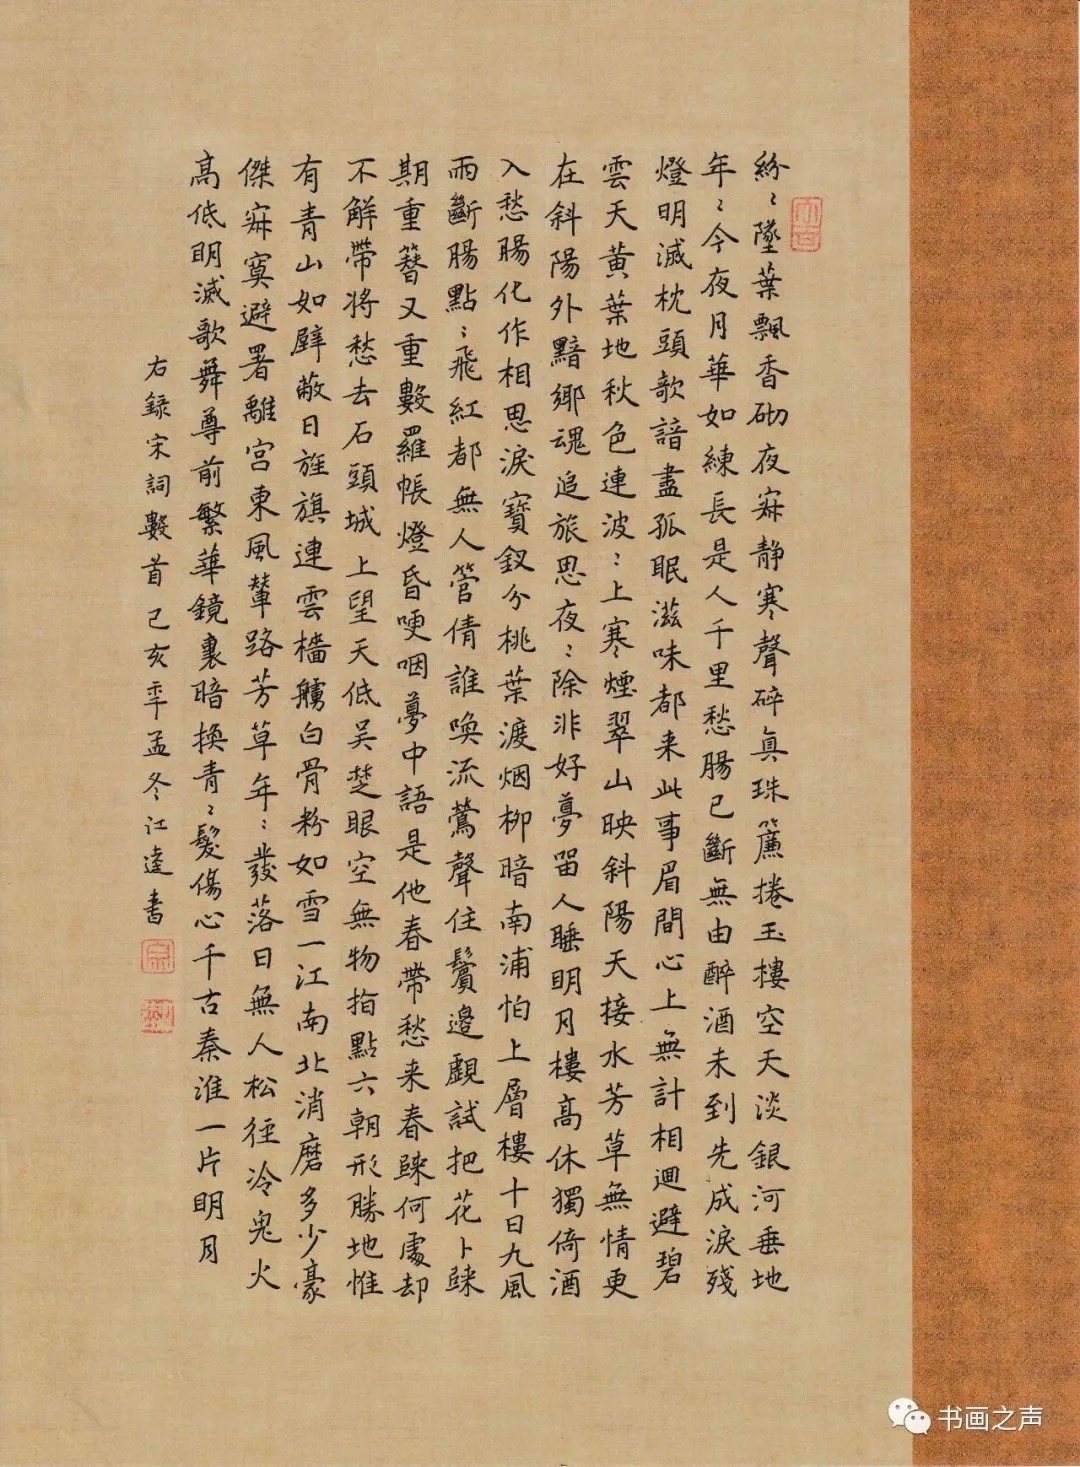 紛〻墜葉飄香砌夜寂静寒聲碎真珠簾捲玉樓空天淡銀河垂地
年〻今夜月華如練長是人千里愁腸已斷無由醉酒未到先成淚殘
燈明滅枕頭欹諳盡孤眠滋味都来此事眉間心上無計相迴避碧
雲天黄葉地秋色連波〻上寒煙翠山映斜陽天接水芳草無情更
在斜陽外黯鄉魂追旅思夜〻除非好夢留人睡明月樓高休獨倚酒
入愁腸化作相思淚寶釵分桃葉渡烟柳暗南浦怕上層樓十日九風
雨斷腸點〻飛紅都無人管倩誰唤流鶯聲住鬢邊覷試把花卜歸
期重簪又重數羅帳燈昏哽咽夢中語是他春帶愁来春歸何處却
不解帶将愁去石頭城上望天低吴楚眼空無物指點六朝形勝地惟
有青山如壁蔽日旌旗連雲檣艣白骨粉如雪一江南北消磨多少豪
傑寂寞避署離宫東風輦路芳草年〻發落日無人松徑冷鬼火
高低明滅歌舞尊前繁華鏡裏暗換青〻髮傷心千古秦淮一片明月
右録宋詞數首己亥年孟冬江逵書
书画之声